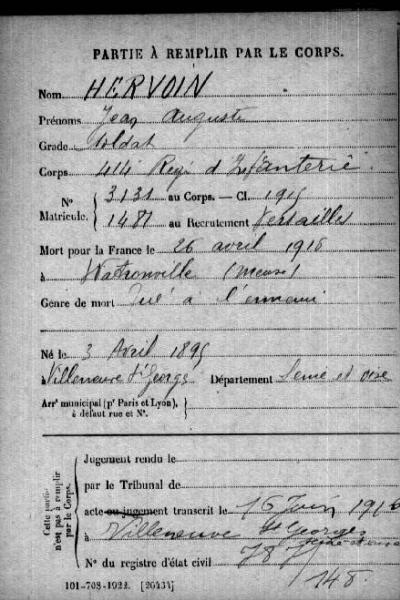 PARTIE À REMPLIR PAR LE CORPS.
Nom HERVOIN
Prénoms Jean Auguste
Grade Soldat
Corps 414 Régt d'Infanterie
N° Matricule. { 3131 au Corps. — Cl. 1915
1481 au Recrutement Versailles
Mort pour la France le 26 avril 1916
à Watronville (Meuse)
Genre de mort Tué à l'ennemi
Né le 3 Avril 1895
à Villeneuve St Georges Département Seine et Oise
Arrt municipal (pr Paris et Lyon), à défaut rue et N°.
Cette partie n'est pas à remplir par le Corps.
Jugement rendu le
par le Tribunal de
acte ou jugement transcrit le 16 Juin 1916
à Villeneuve St Georges
N° du registre d'état civil
148
101-708-1922. [26434]